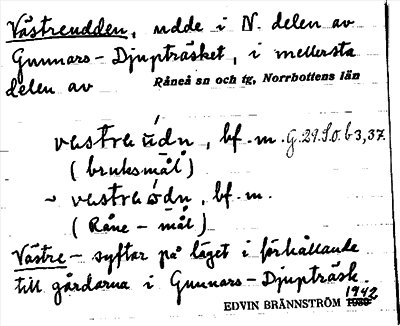 Västreudden, udde i N. delen av
Gunnars-Djupträsket, i mellersta
delen av Råneå sn och tg, Norrbottens län
vestraúdn, bf. m. G.29.S.o.b 3,37.
(bruksmål)
~ vestraódn, bf. m.
(Råne-mål)
Västre- syftar på läget i förhållande
till gårdarna i Gunnars-Djupträsk.
1942
EDVIN BRÄNNSTRÖM 1939